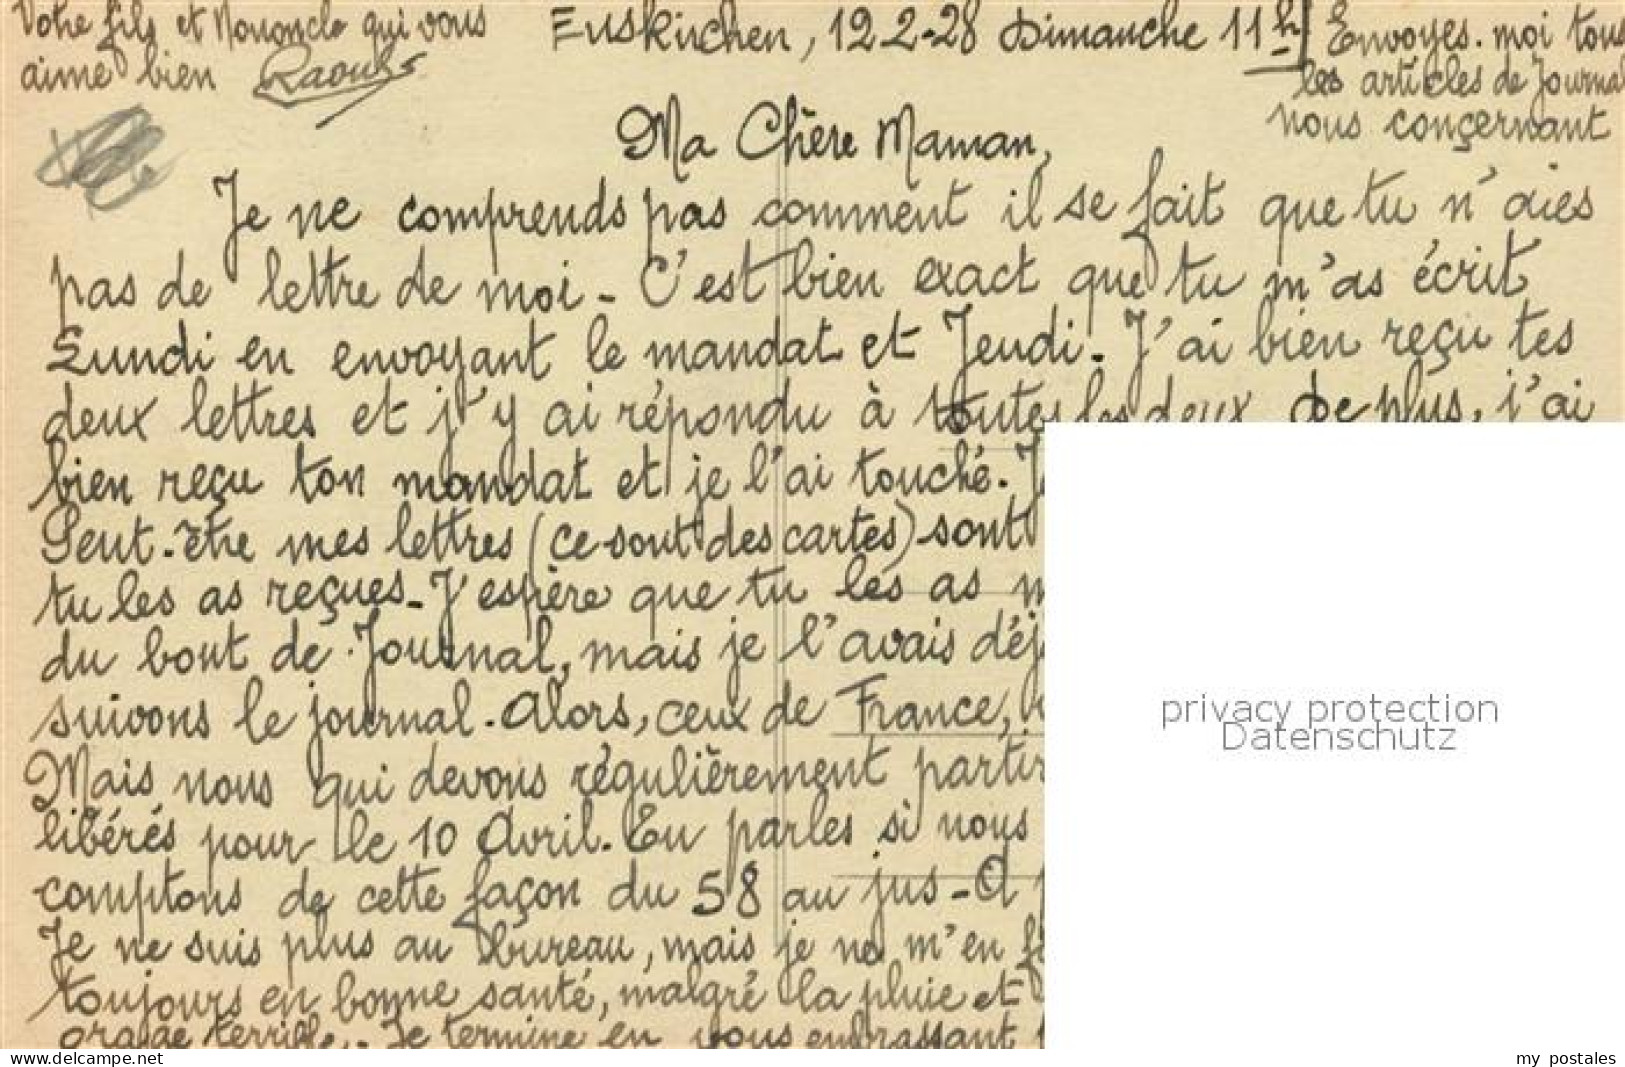 Votre fils et Nononcle qui vous
aime bien Raouls
Euskirchen, 12-2-28 Dimanche 11h
Envoyes-moi tous
les articles de Journal
nous conçernant
Ma Chère Maman,
Je ne comprends pas comment il se fait que tu n'aies
pas de lettre de moi - C'est bien exact que tu m'as écrit
Lundi en envoyant le mandat et Jeudi. J'ai bien reçu tes
deux lettres et j'y ai répondu à toutes les deux. De plus, j'ai
bien reçu ton mandat et je l'ai touché.
Peut-être mes lettres (ce sont des cartes) sont
tu les as reçues - J'espère que tu les as
du bout de Journal, mais je l'avais déj
suivons le journal. Alors, ceux de France,
Mais nous qui devons régulièrement partir
libérés pour le 10 Avril. En parles si nous
comptons de cette façon du 58 au jus - A
Je ne suis plus au bureau, mais je ne m'en
toujours en bonne santé, malgré la pluie et
orage terrible. Je termine en vous embrassant
privacy protection
Datenschutz
delcampe.net
my postales